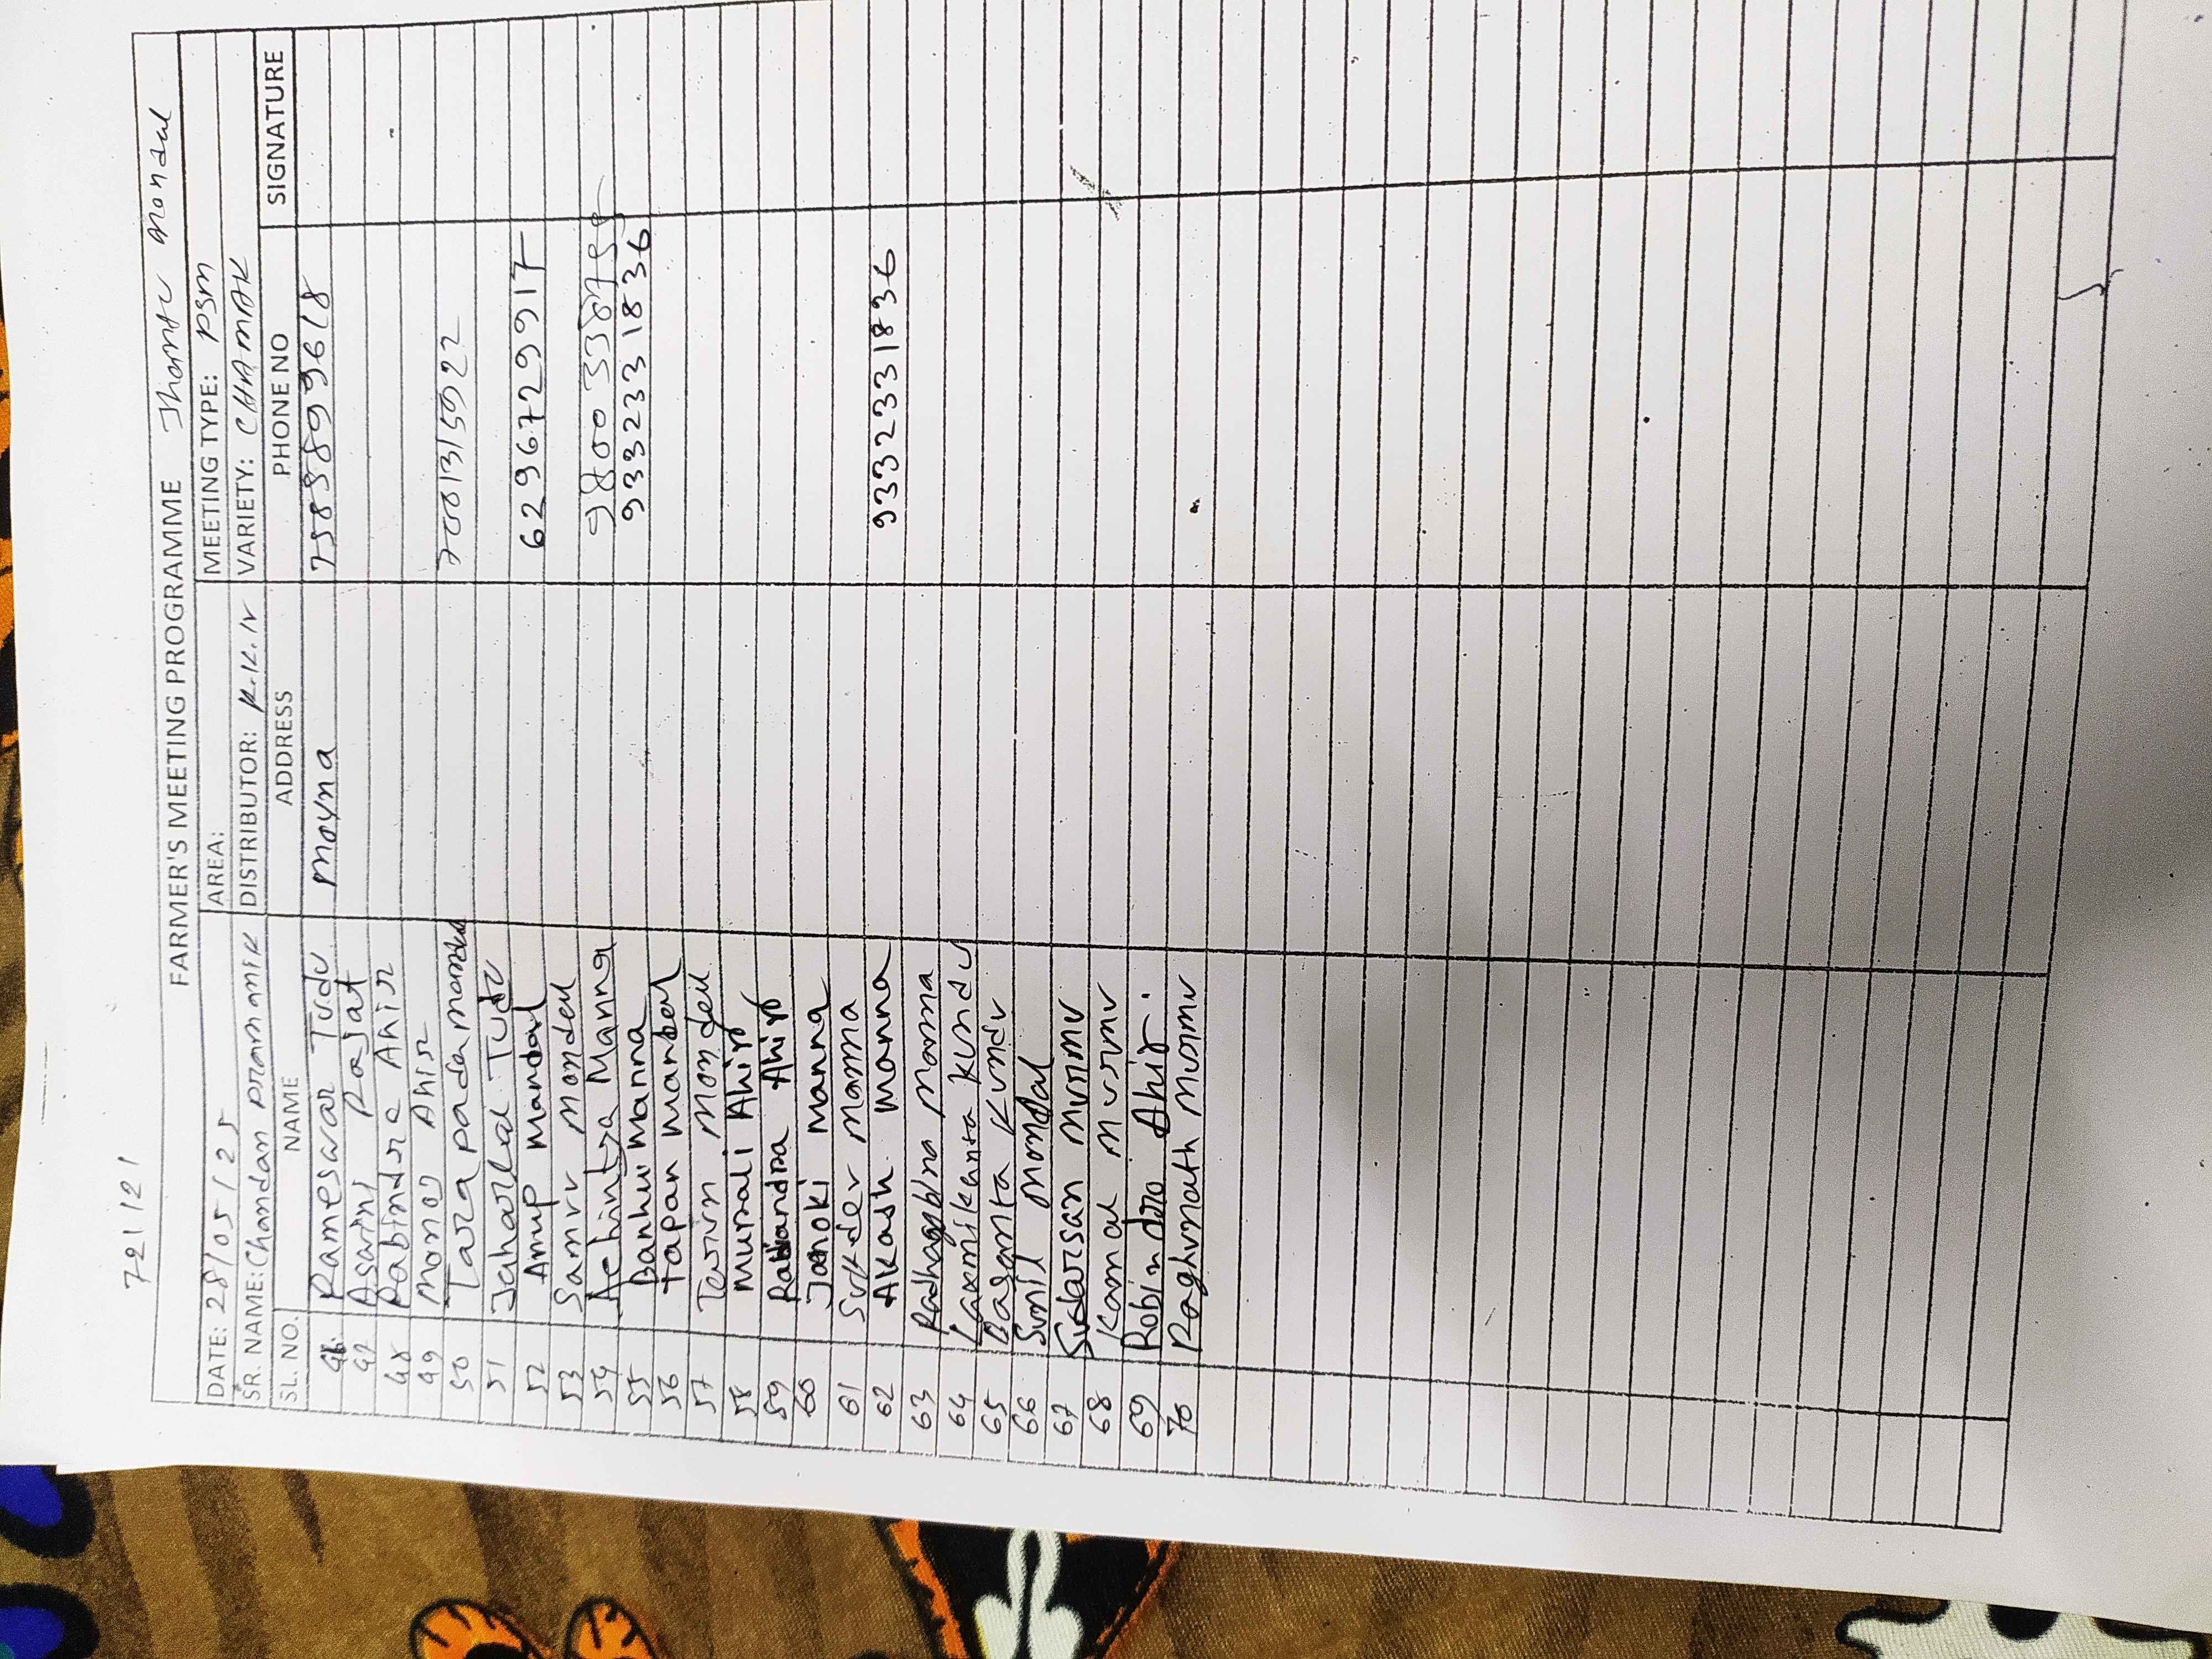 721121
FARMER'S MEETING PROGRAMME Jhantu Mondal
DATE: 28/05/25 AREA: MEETING TYPE: PSM
SR. NAME: Chandan Pramanik DISTRIBUTOR: K.K.N VARIETY: CHAMAK
SL. NO. NAME ADDRESS PHONE NO SIGNATURE
46. Ramesvar Tudu Moyna
47 Assarini Rajat
48 Rabindra Ahir
49 Monoj Ahir
50 Tarapada mondal
51 Jaharlal Tudu
52 Anup Mandal 6296729917
53 Samru Mondal
54 Achintya Manna
55 Banku Manna 9332331836
56 tapan Mandal
57 Tarun Mondal
58 Murali Ahir
59 Rabiandra Ahir
60 Janoki Manna
61 Sukder Manna
62 AKash Manna 9332331836
63 Manna
64 Laxmikhanta Kundu
65 Basanta Kundu
66 Sunil Mondal
67 Sudarsan Murmu
68 Kamal Murmu
69 Robindro Ahir.
70 Raghunath Murmu